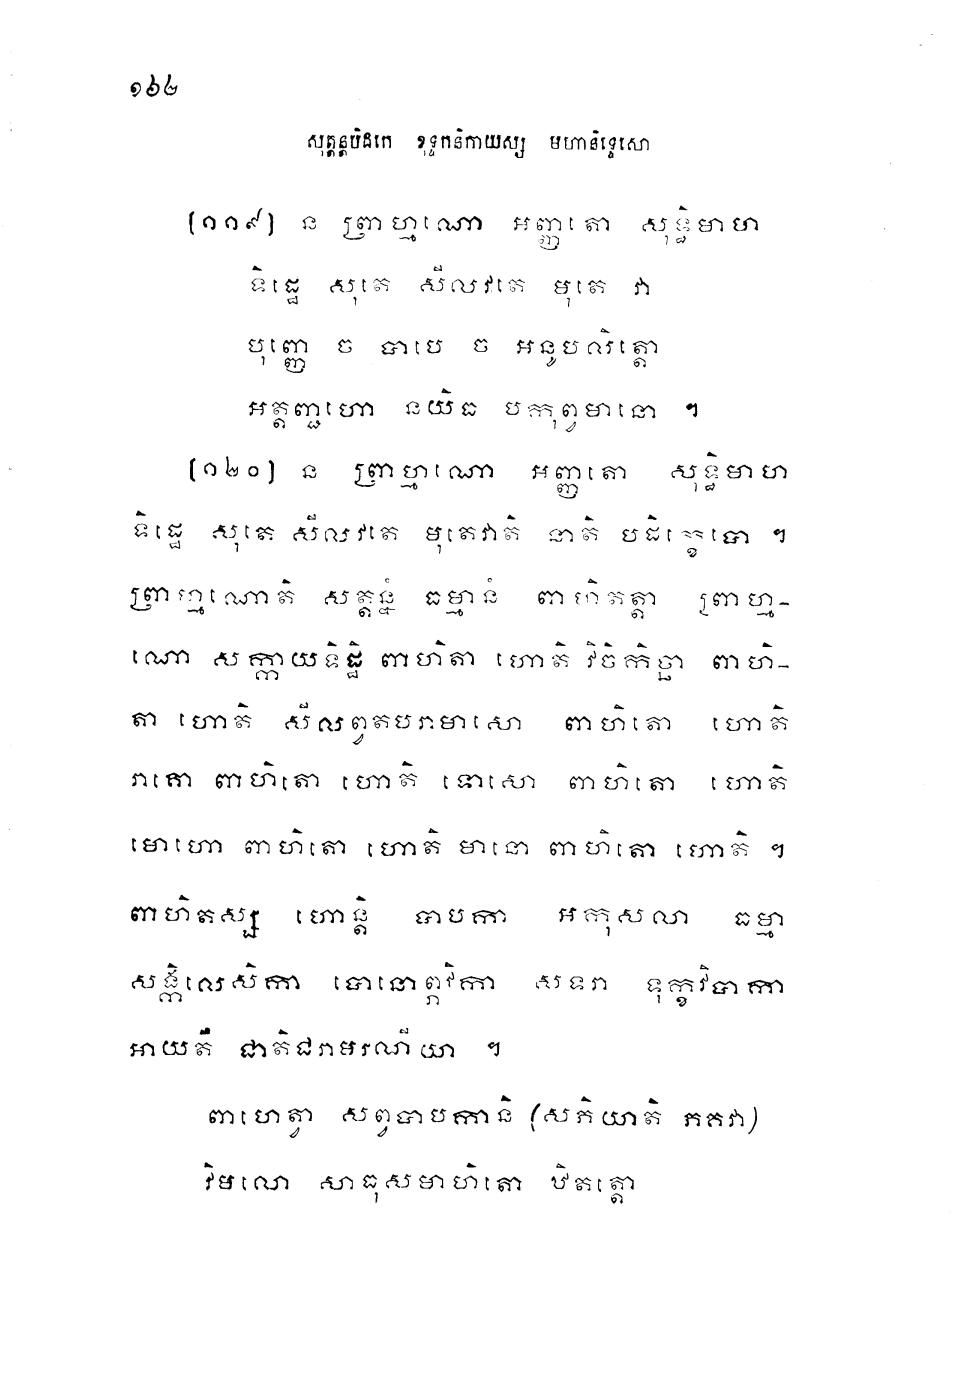 ១៦២
សុត្តន្តបិដកេ ខុទ្ទកនិកាយស្ស មហានិទ្ទេសោ
[១១៩] ន ព្រាហ្មណោ អញ្ញតោ សុទ្ធិមាហ
ទិដ្ឋេ សុតេ សីលវតេ មុតេ វា
បុញ្ញេ ច បាបេ ច អនូបលិត្តោ
អត្តញ្ជហោ នយិធ បកុព្វមានោ ។
[១២០] ន ព្រាហ្មណោ អញ្ញតោ សុទ្ធិមាហ
ទិដ្ឋេ សុតេ សីលវតេ មុតេវាតិ នាតិ បដិក្ខេបោ ។
ព្រាហ្មណោតិ សត្តន្នំ ធម្មានំ ពាហិតត្តា ព្រាហ្ម-
ណោ សក្កាយទិដ្ឋិ ពាហិតា ហោតិ វិចិកិច្ឆា ពាហិ-
តា ហោតិ សីលព្វតបរាមាសោ ពាហិតោ ហោតិ
រាគោ ពាហិតោ ហោតិ ទោសោ ពាហិតោ ហោតិ
មោហោ ពាហិតោ ហោតិ មានោ ពាហិតោ ហោតិ ។
ពាហិតស្ស ហោន្តិ បាបកា អកុសលា ធម្មា
សង្កិលេសិកា បោនោព្ភវិកា សទរា ទុក្ខវិបាកា
អាយតឹ ជាតិជរាមរណីយា ។
ពាហេត្វា សព្វបាបកានិ (សភិយាតិ ភគវា)
វិមលោ សាធុសមាហិតោ ឋិតត្តោ